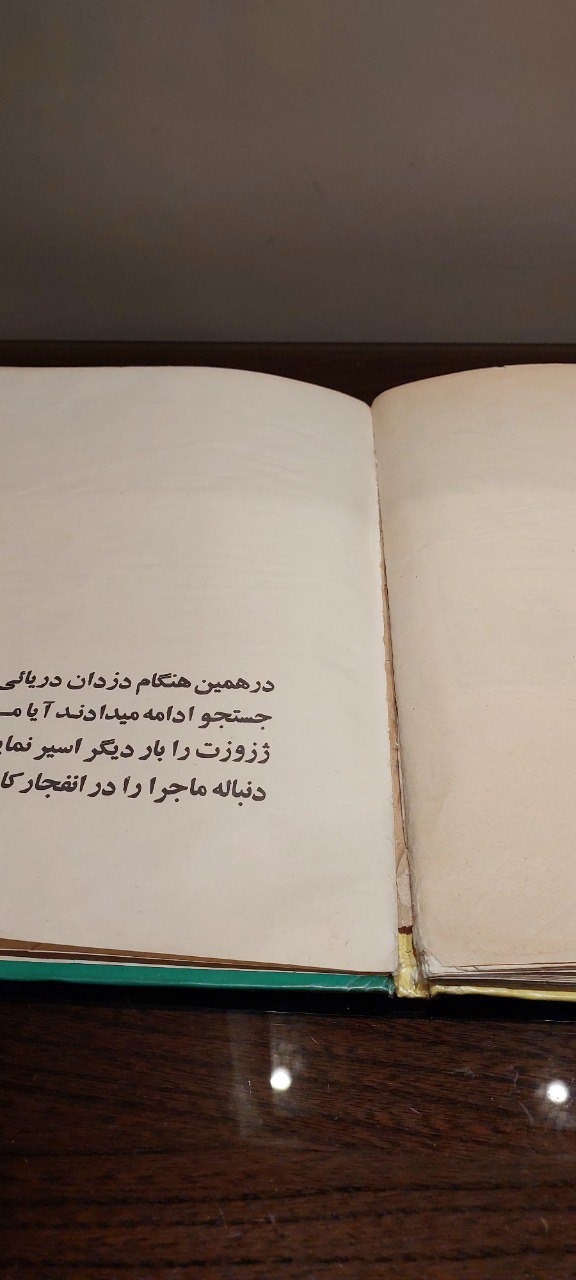 درهمین هنگام دزدان دریائی
جستجو ادامه میدادند آیا مـ
ژزوزت را بار دیگر اسیر نمای
دنباله ماجرا را در انفجار کا